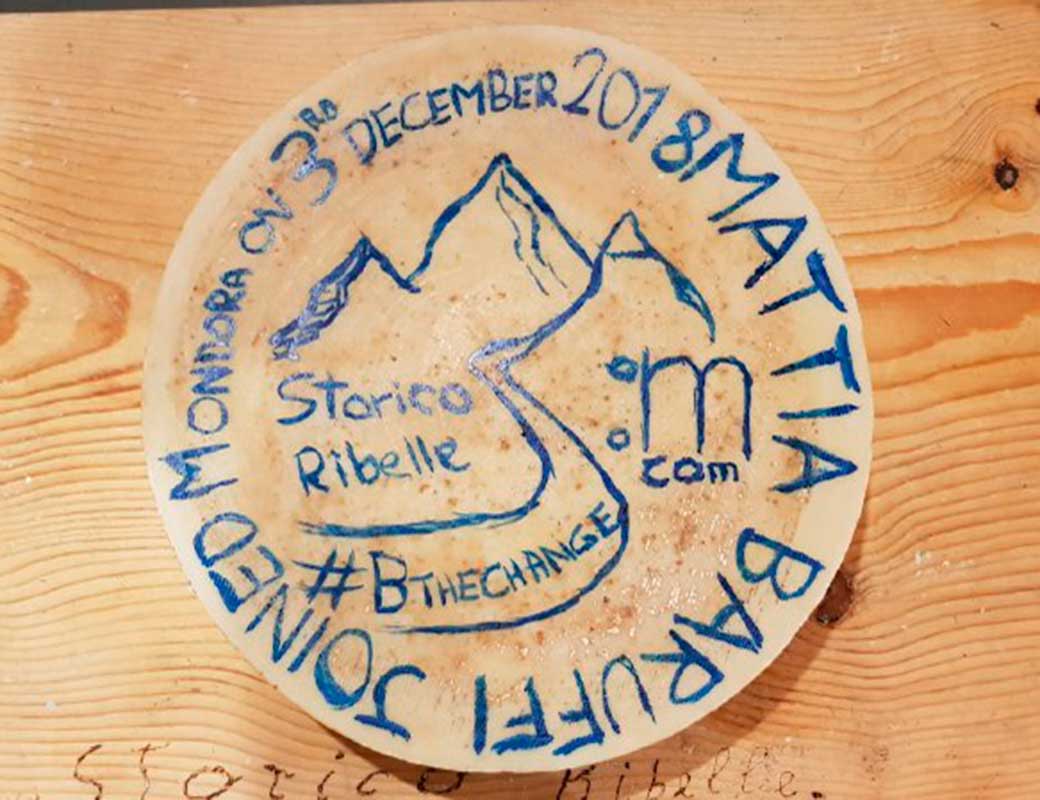 MATTIA BARUFFI JOINED MONDORA ON 3RD DECEMBER 2018
Storico
Ribelle
m
com
#BTHECHANGE
Storico Ribelle.